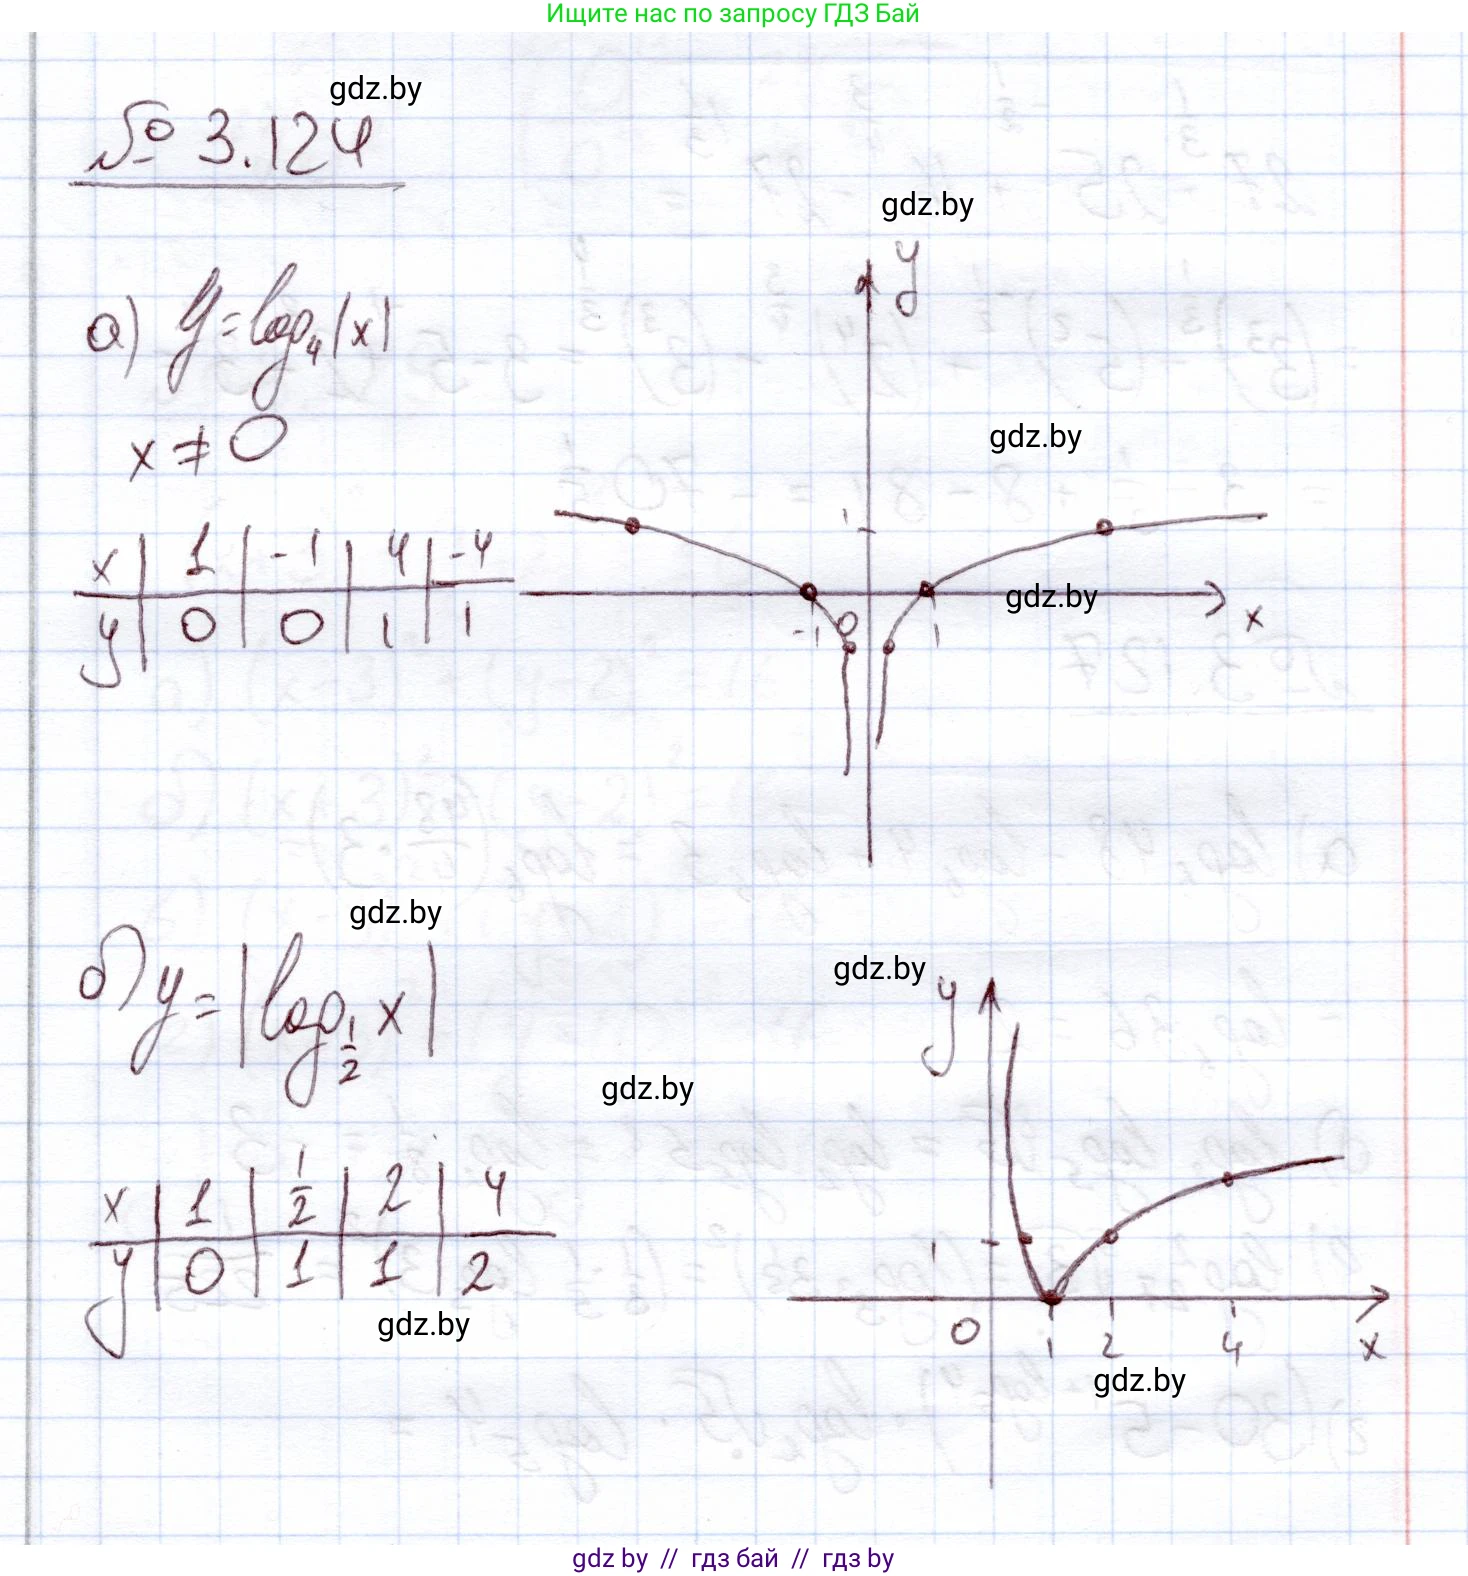 Ищите нас по запросу ГДЗ Бай
gdz.by
№ 3.124
gdz.by
y
а) y = log₄|x|
x ≠ 0
gdz.by
1
x | 1 | -1 | 4 | -4
y | 0 | 0 | 1 | 1
gdz.by
-1 0 1 x
gdz.by
gdz.by
y
б) y = |log_{1/2} x|
gdz.by
x | 1 | 1/2 | 2 | 4
y | 0 | 1 | 1 | 2
1
gdz.by
0 1 2 4 x
gdz.by
gdz by // гдз бай // гдз by